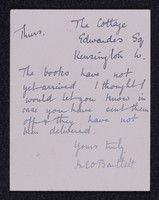 The Cottage
Thurs. Edwardes Sq
Kensington W.
The books have not
yet arrived. I thought I
would let you know in
case you have sent them
off & they have not
been delivered.
Yours truly
Bartlett